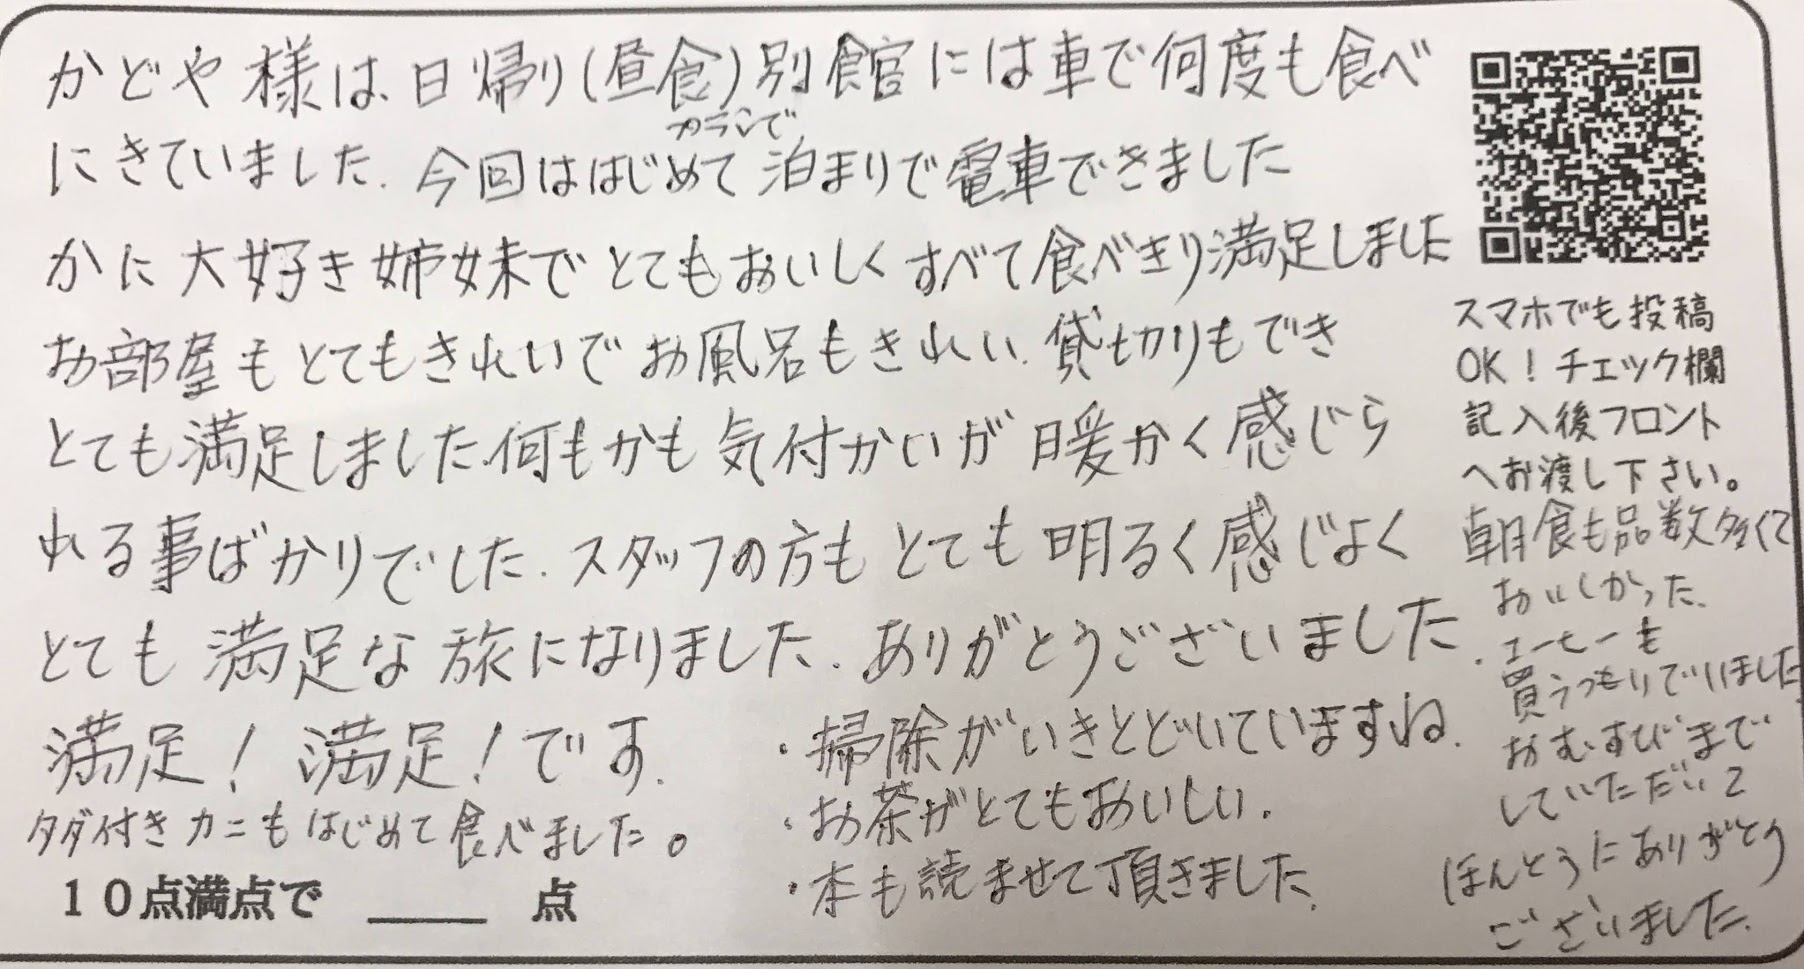 かどや様は、日帰り(昼食)別館には車で何度も食べ
にきていました。今回ははじめて泊まりで電車できました
かに大好き姉妹でとてもおいしくすべて食べきり満足しました
お部屋もとてもきれいでお風呂もきれい、貸切りもでき
とても満足しました。何もかも気付かいが暖かく感じら
れる事ばかりでした。スタッフの方もとても明るく感じよく
とても満足な旅になりました。ありがとうございました。
満足!満足!です。
タダ付きカニもはじめて食べました。
10点満点で ____ 点
・掃除がいきとどいていますね。
・お茶がとてもおいしい。
・本も読ませて頂きました。
スマホでも投稿
OK!チェック欄
記入後フロント
へお渡し下さい。
朝食も品数多くて
おいしかった。
コーヒーも
買うつもりでいました
おむすびまで
していただいて
ほんとうにありがとう
ございました。